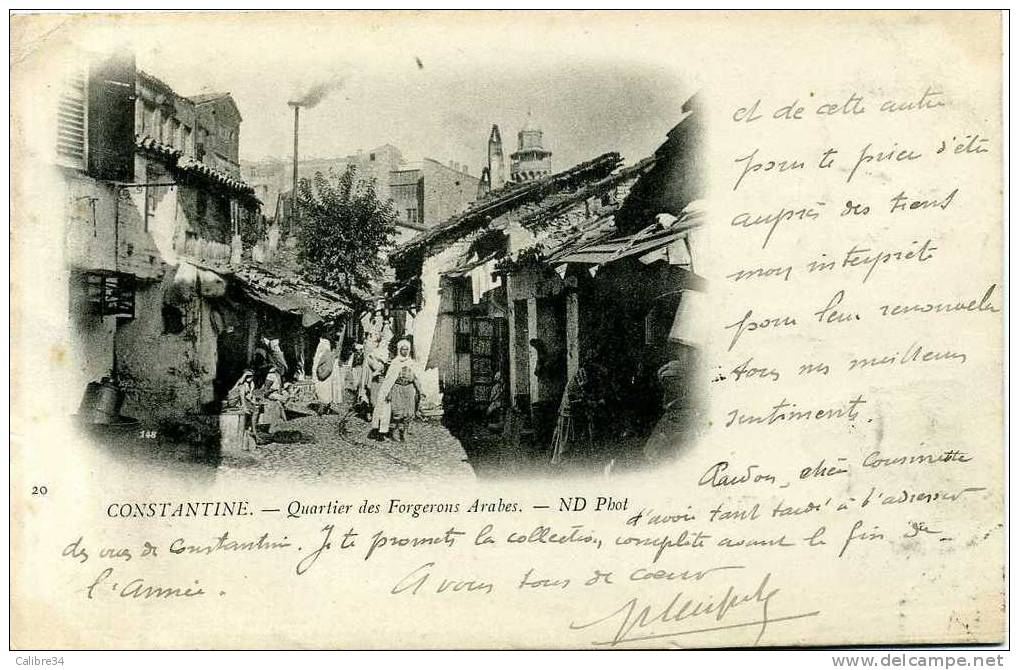 et de cette autre
pour te prier d'être
auprès des tiens
mon interprète
pour leur renouveler
tous mes meilleurs
sentiments.
Pardon, chère Cousinette
d'avoir tant tardé à t'adresser
des vues de Constantine. Je te promets la collection complète avant la fin de
l'Année.
A vous tous de coeur
148
20
CONSTANTINE. — Quartier des Forgerons Arabes. — ND Phot
Calibre34
delcampe.net